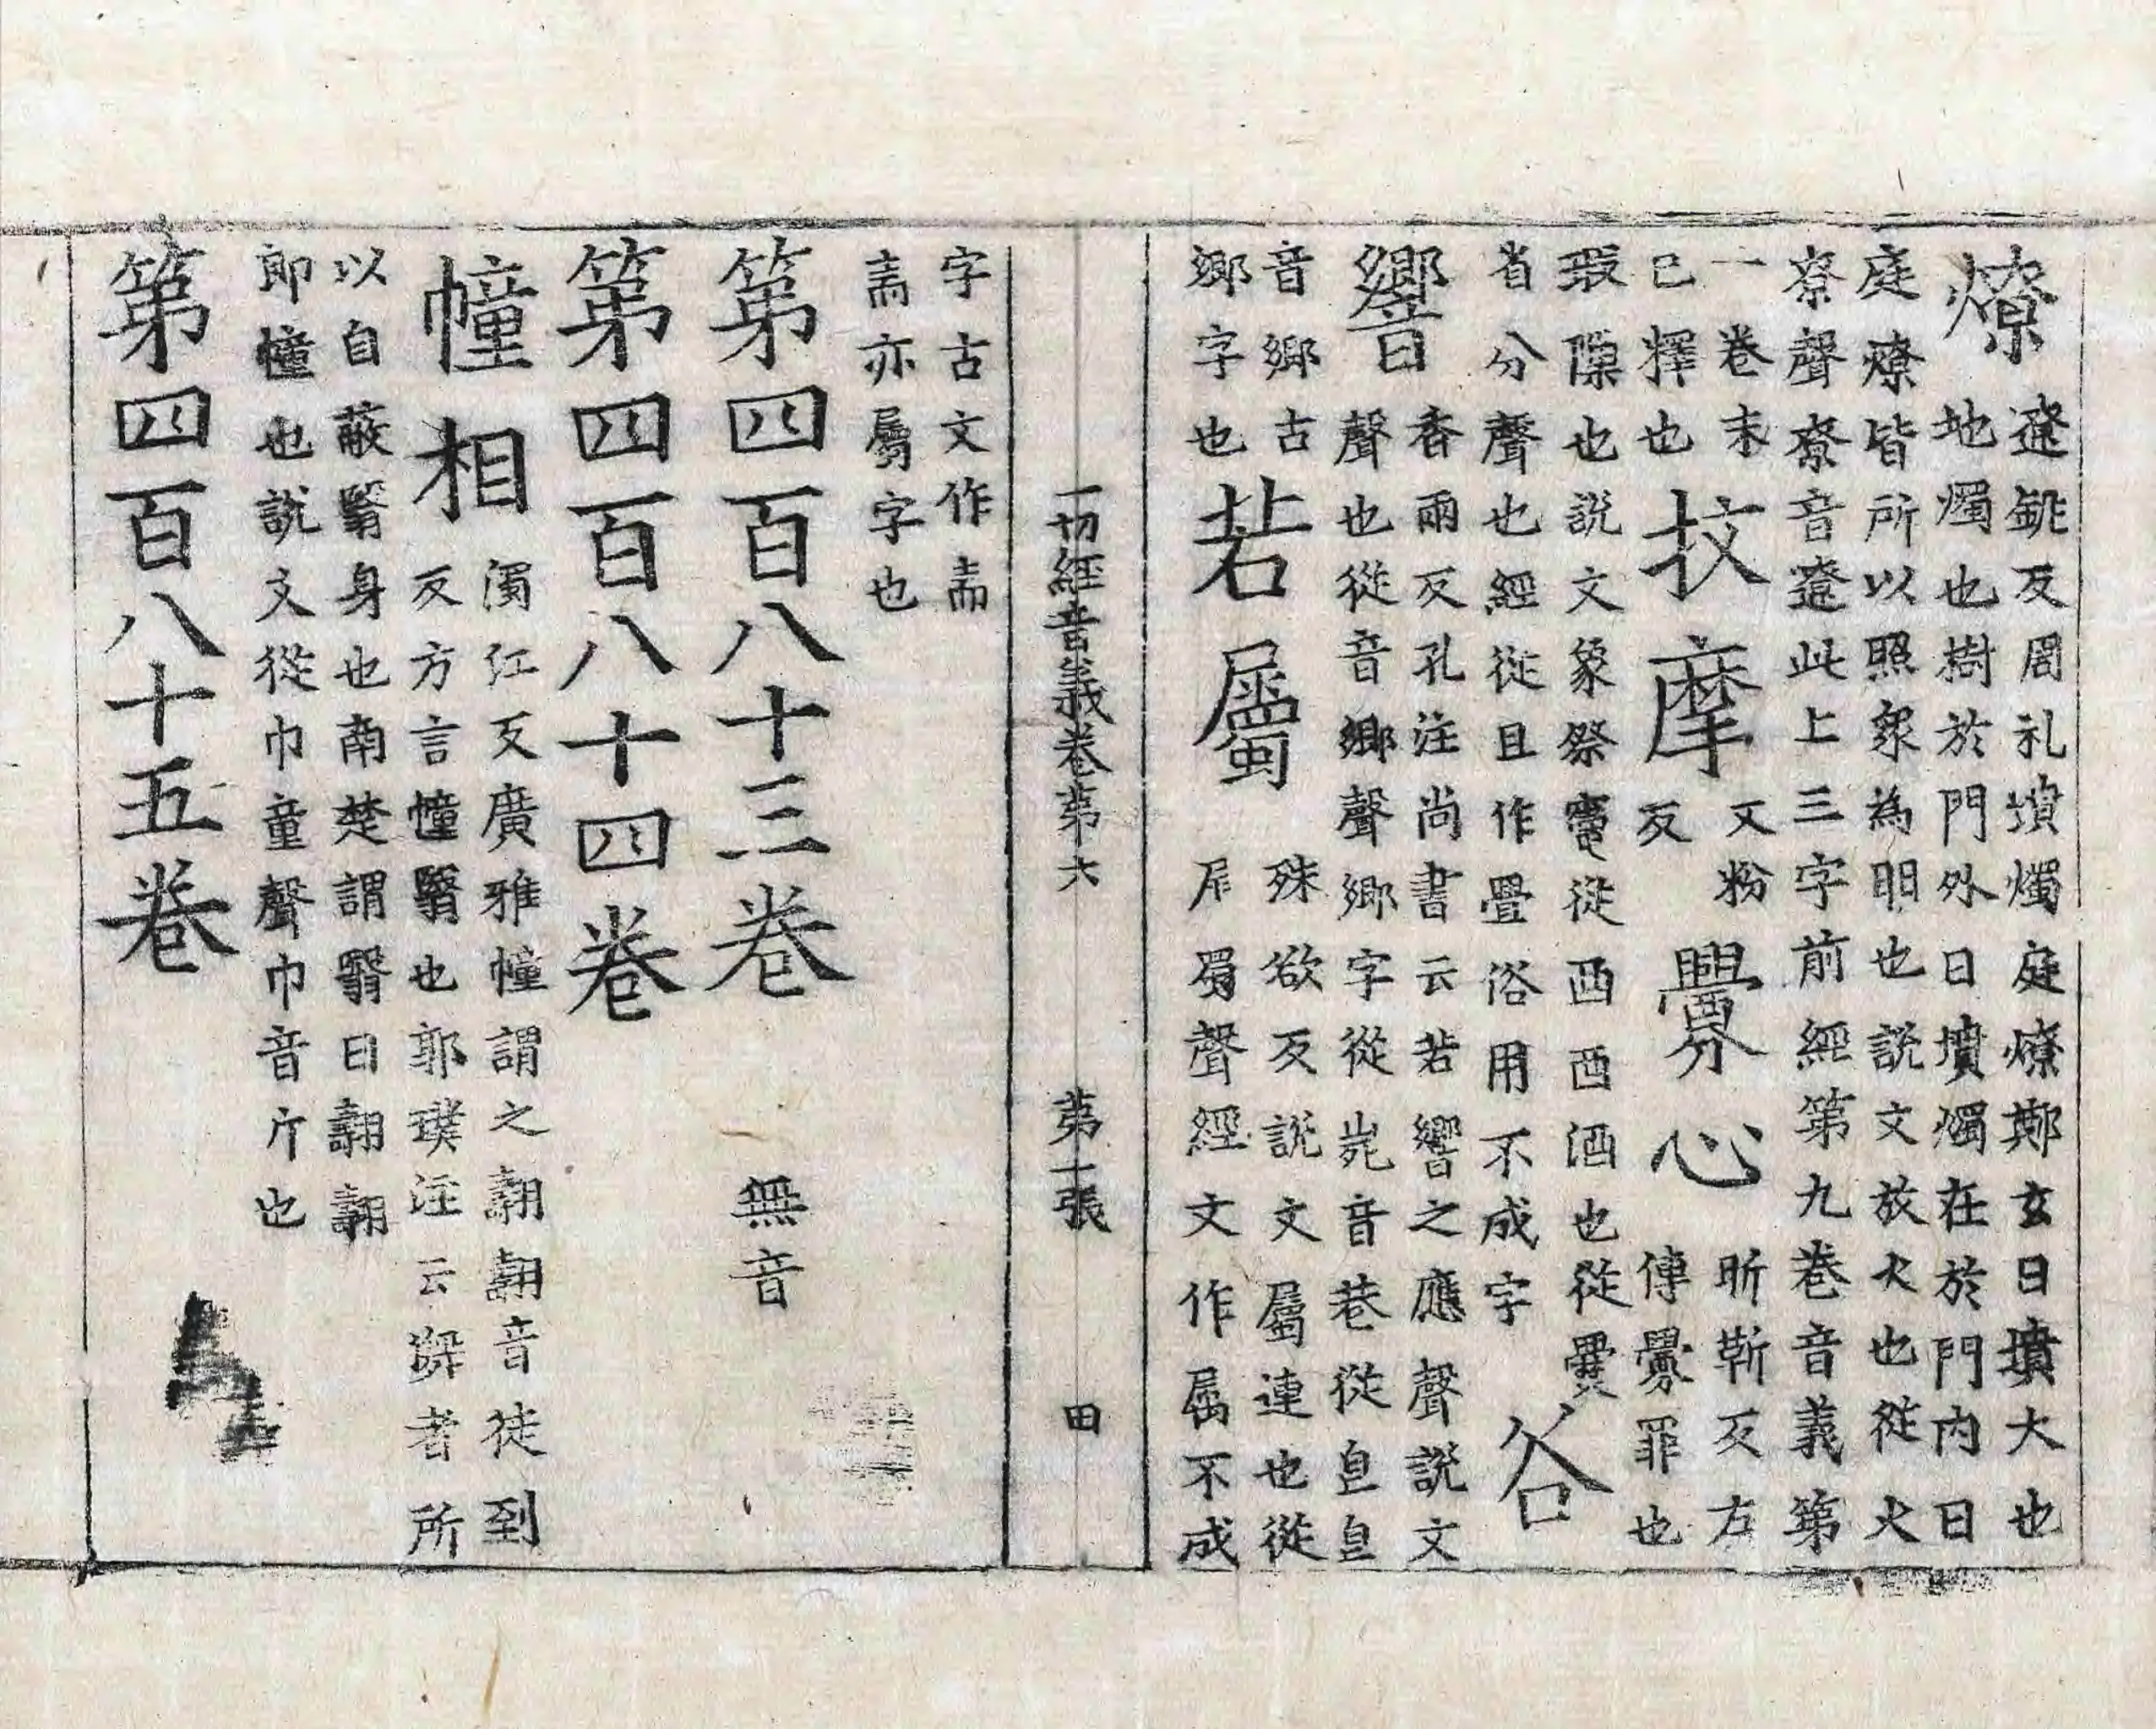 燎 遼銚反周礼墳燭庭燎鄭玄曰墳大也
地燭也樹於門外曰墳燭在於門內曰
庭燎皆所以照眾為明也說文放火也從火
尞聲尞音遼此上三字前經第九卷音義第
一卷末
已釋也
抆摩 文粉
反
舋心 昕靳反左
傳舋罪也
瑕隟也說文象祭竈從酉酉酒也從爨
省分聲也經從且作疊俗用不成字
谷
響 香兩反孔注尚書云若響之應聲說文
聲也從音鄉聲鄉字從音巷從皀皀
音鄉古
鄉字也
若屬 殊欲反說文屬連也從
尾蜀聲經文作属不成
一切經音義卷第六 第十張 田
字古文作
亦屬字也
第四百八十三卷 無音
第四百八十四卷
幢相 濁江反廣雅幢謂之翿翿音徒到
反方言幢翳也郭璞注云儛者所
以自蔽翳身也南楚謂翳曰翿翿
即幢也說文從巾童聲巾音斤也
第四百八十五卷